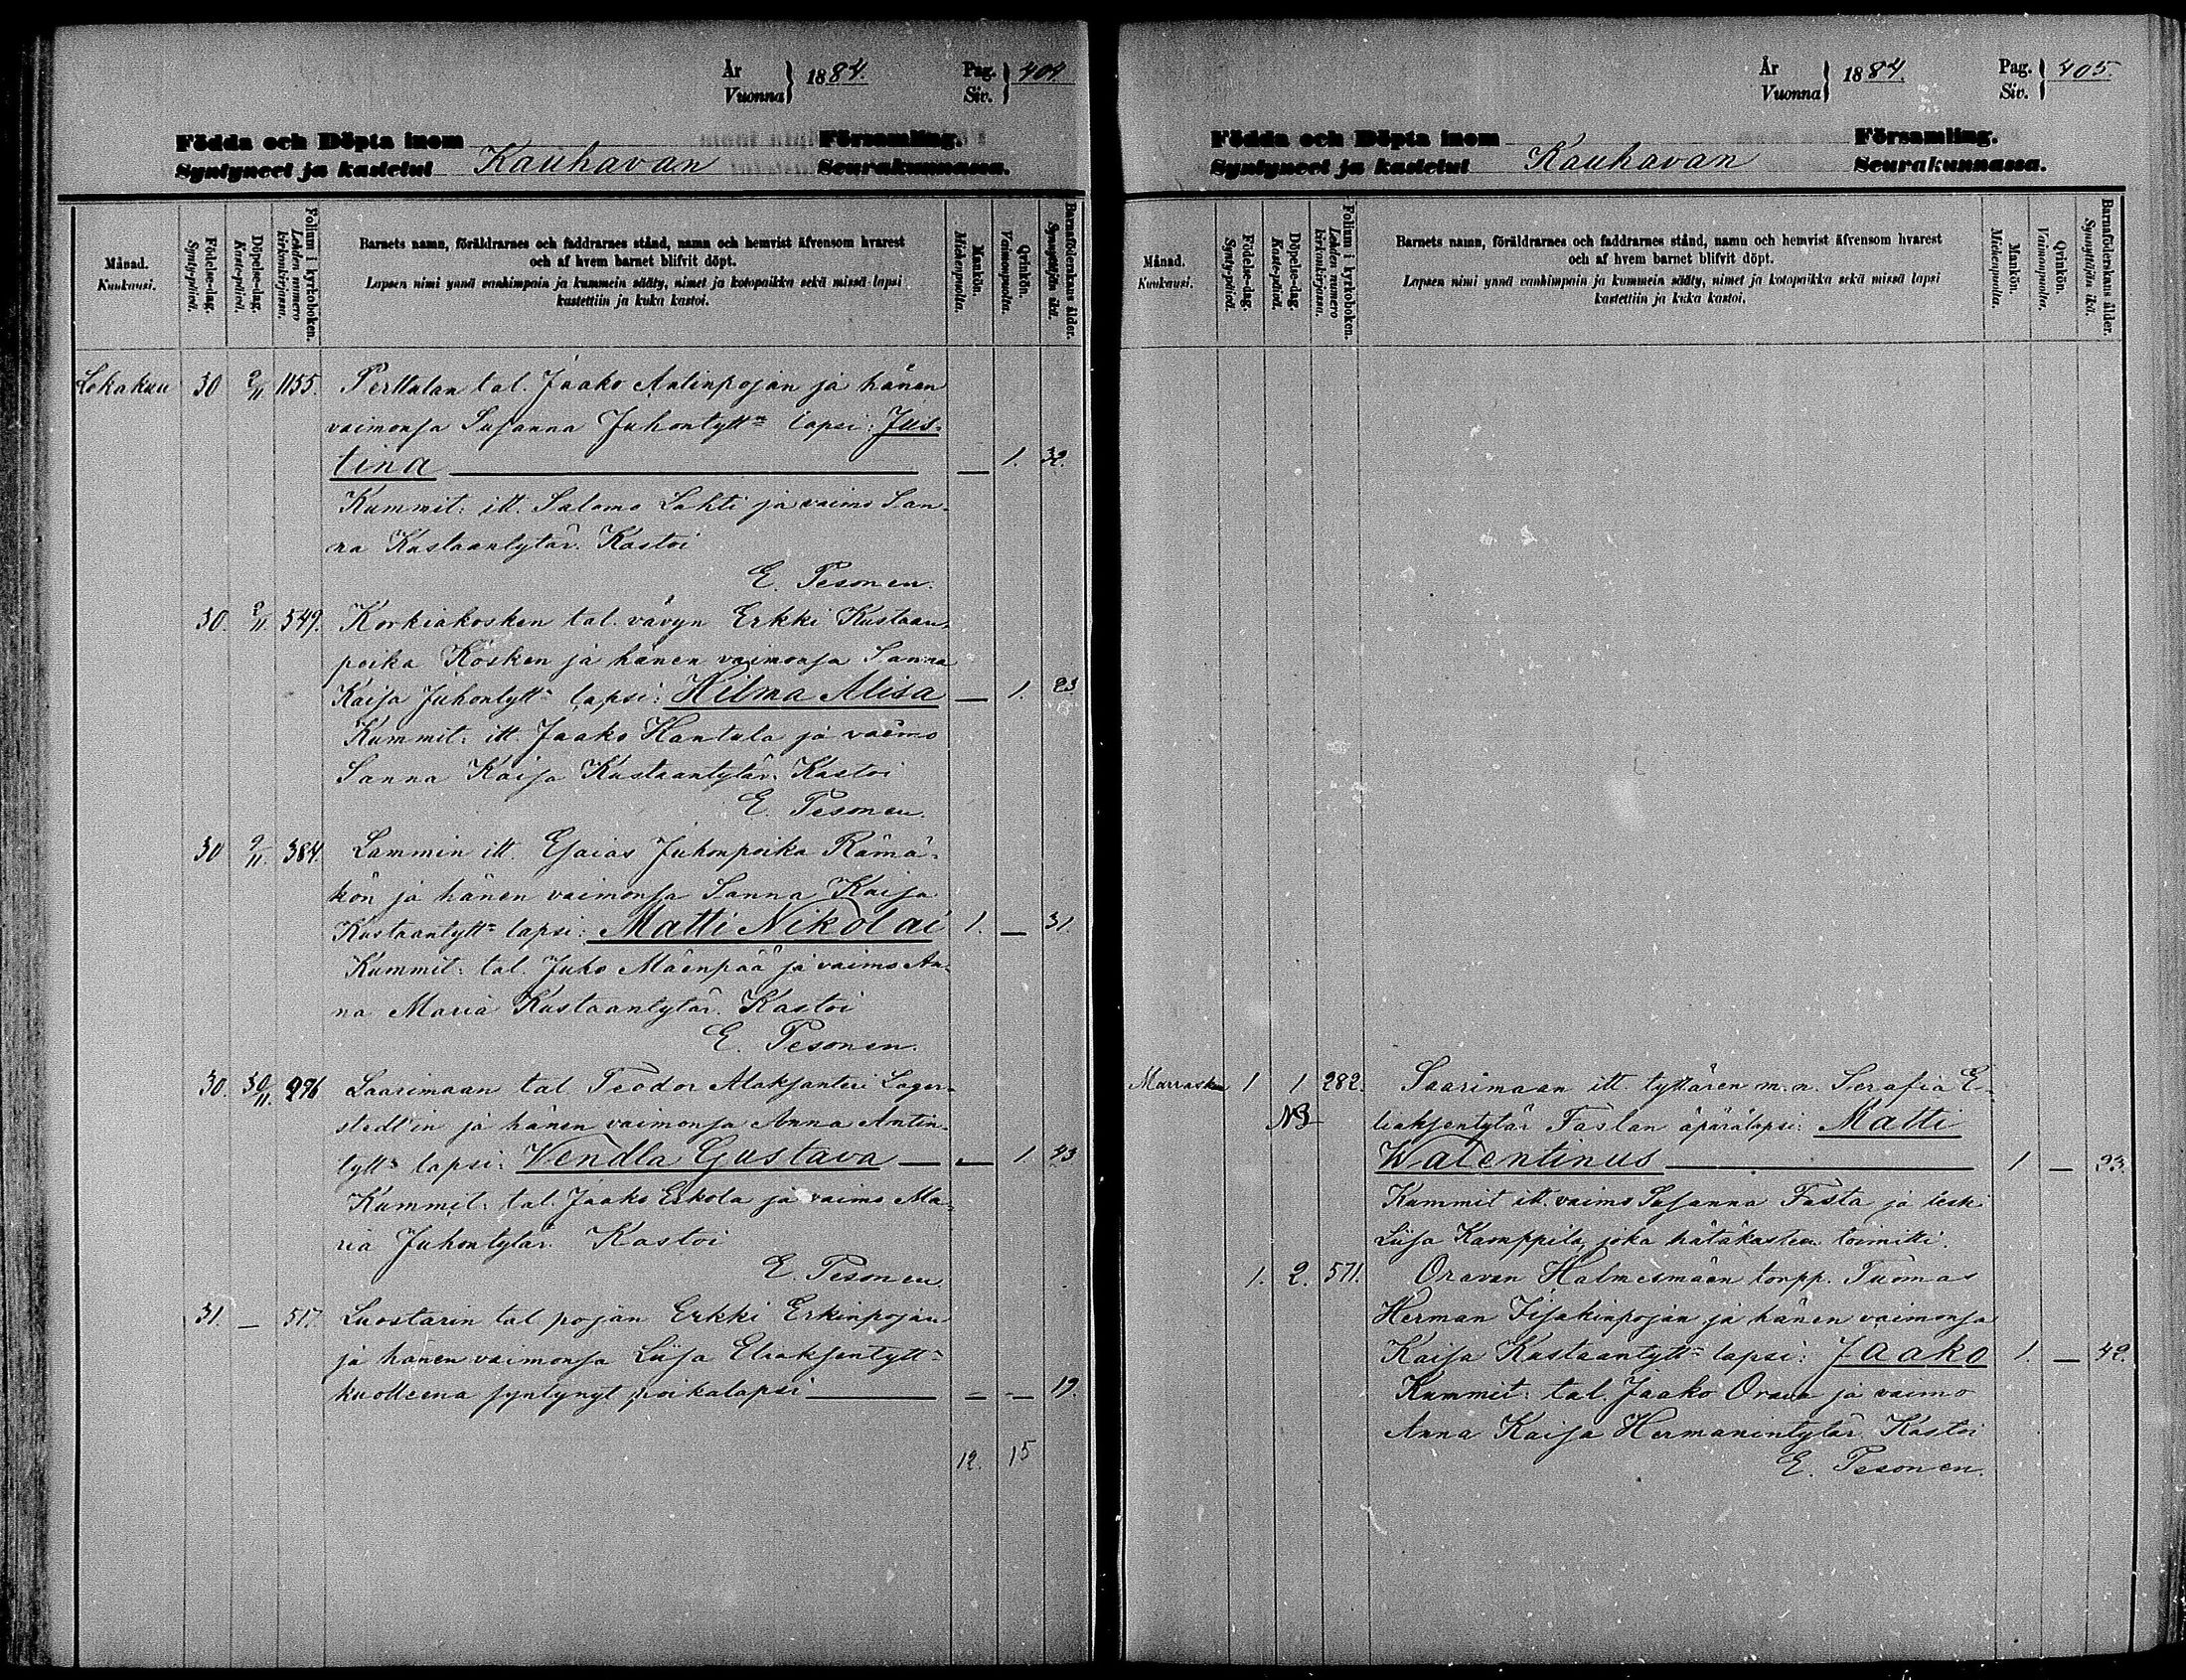 År
Vuonna } 1884. Pag.
Siv. } 404
Födda och Döpta inom Församling.
Syntyneet ja kastetut Kauhavan Seurakunnassa.
Månad.
Kuukausi.
Födelse-dag.
Synty-päivä.
Döpelse-dag.
Kaste-päivä.
Folium i kyrkoboken.
Lehden numero
kirkonkirjassa.
Barnets namn, föräldrarnes och faddrarnes stånd, namn och hemvist äfvensom hvarest
och af hvem barnet blifvit döpt.
Lapsen nimi ynnä vanhimpain ja kummein sääty, nimet ja kotopaikka sekä missä lapsi
kastettiin ja kuka kastoi.
Mankön.
Miehenpuolta.
Qvinkön.
Vaimonpuolta.
Barnaföderskans ålder.
Synnyttäjän ikä.
Lokakuu 30 2/11 1155. Perttulan tal. Jaako Antinpojan ja hänen
vaimonsa Susanna Juhontytt:n lapsi: Jus-
tina — — 1. 32.
Kummit: itt. Salomo Lahti ja vaimo San-
na Kustaantytär. Kastoi
E. Pesonen.
30. 2/11. 549. Korkiakosken tal. vävyn Erkki Kustaan-
poika Kosken ja hänen vaimonsa Sanna
Kaisa Juhontytt:n lapsi: Hilma Alisa — 1. 23.
Kummit: itt Jaako Hantula ja vaimo
Sanna Kaisa Kustaantytär. Kastoi
E. Pesonen.
30 9/11. 384. Lammin itt. Esaias Juhonpoika Rämä-
kön ja hänen vaimonsa Sanna Kaisa
Kustaantytt:n lapsi: Matti Nikolai 1. — 31.
Kummit: tal. Juho Mäenpää ja vaimo An-
na Maria Kustaantytär. Kastoi
E. Pesonen.
30. 30/11. 276 Saarimaan tal Teodor Aleksanteri Lager-
stedt'in ja hänen vaimonsa Anna Antin-
tytt:n lapsi: Vendla Gustava — — 1. 43
Kummit: tal. Jaako Eskola ja vaimo Ma-
ria Juhontytär. Kastoi
E. Pesonen.
31. — 517. Luostarin tal pojan Erkki Erkinpojan
ja hänen vaimonsa Liisa Eliaksentytt:n
kuolleena syntynyt poikalapsi — — — 19.
12. 15
År
Vuonna } 1884. Pag.
Siv. } 405.
Födda och Döpta inom Församling.
Syntyneet ja kastetut Kauhavan Seurakunnassa.
Månad.
Kuukausi.
Födelse-dag.
Synty-päivä.
Döpelse-dag.
Kaste-päivä.
Folium i kyrkoboken.
Lehden numero
kirkonkirjassa.
Barnets namn, föräldrarnes och faddrarnes stånd, namn och hemvist äfvensom hvarest
och af hvem barnet blifvit döpt.
Lapsen nimi ynnä vanhimpain ja kummein sääty, nimet ja kotopaikka sekä missä lapsi
kastettiin ja kuka kastoi.
Mankön.
Miehenpuolta.
Qvinkön.
Vaimonpuolta.
Barnaföderskans ålder.
Synnyttäjän ikä.
Marrask. 1 1 282. Saarimaan itt. tyttären m. a. Serafia E-
NB liaksentytär Fastan äpärälapsi: Matti
Walentinus — 1 — 23.
Kummit itt. vaimo Susanna Fasta ja lesk.
Liisa Kamppila, joka hätäkasteen toimitti.
1. 2. 571. Oravan Halmesmäen torpp. Tuomas
Herman Iisakinpojan ja hänen vaimonsa
Kaisa Kustaantytt:n lapsi: Jaako 1. — 42.
Kummit: tal. Jaako Orava ja vaimo
Anna Kaisa Hermanintytär. Kastoi
E. Pesonen.